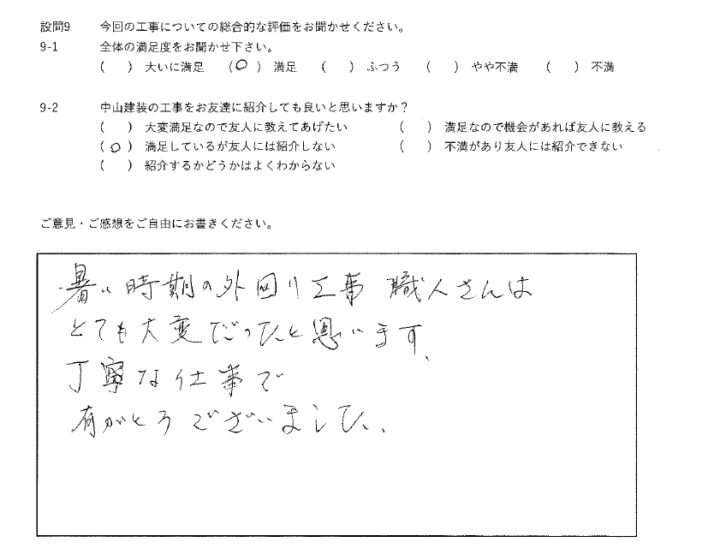 設問9 今回の工事についての総合的な評価をお聞かせください。
9-1 全体の満足度をお聞かせ下さい。
( ) 大いに満足 (○) 満足 ( ) ふつう ( ) やや不満 ( ) 不満
9-2 中山建装の工事をお友達に紹介しても良いと思いますか？
( ) 大変満足なので友人に教えてあげたい ( ) 満足なので機会があれば友人に教える
(○) 満足しているが友人には紹介しない ( ) 不満があり友人には紹介できない
( ) 紹介するかどうかはよくわからない
ご意見・ご感想をご自由にお書きください。
暑い時期の外回り工事 職人さんは
とても大変だったと思います、
丁寧な仕事で
有がとうございました、